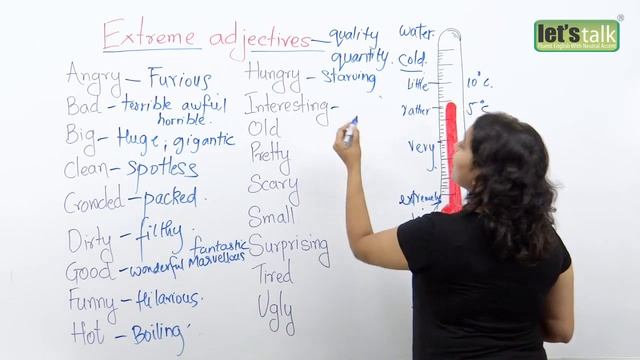 Extreme adjectives – quality
quantity.
Angry – Furious
Bad – terrible awful
horrible.
Big – Huge, gigantic
Clean – spotless
Crowded – packed.
Dirty – filthy
fantastic
Good – wonderful Marvellous
Funny – Hilarious.
Hot – Boiling
Hungry – starving
Interesting –
Old
Pretty
Scary
Small
Surprising
Tired
Ugly
water
cold.
little 10°C.
rather 5°C
very
extremely
let's talk
Fluent English With Neutral Accent